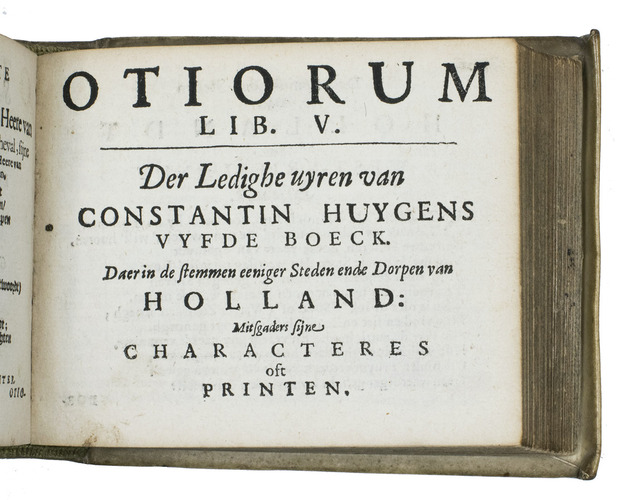 TE
Heere van
heval, sijne
Heere van
OTIORUM
LIB. V.
Der Ledighe uyren van
CONSTANTIN HUYGENS
VYFDE BOECK.
Daer in de stemmen eeniger Steden ende Dorpen van
HOLLAND:
Mitsgaders sijne
CHARACTERES
oft
PRINTEN.
OTIO-